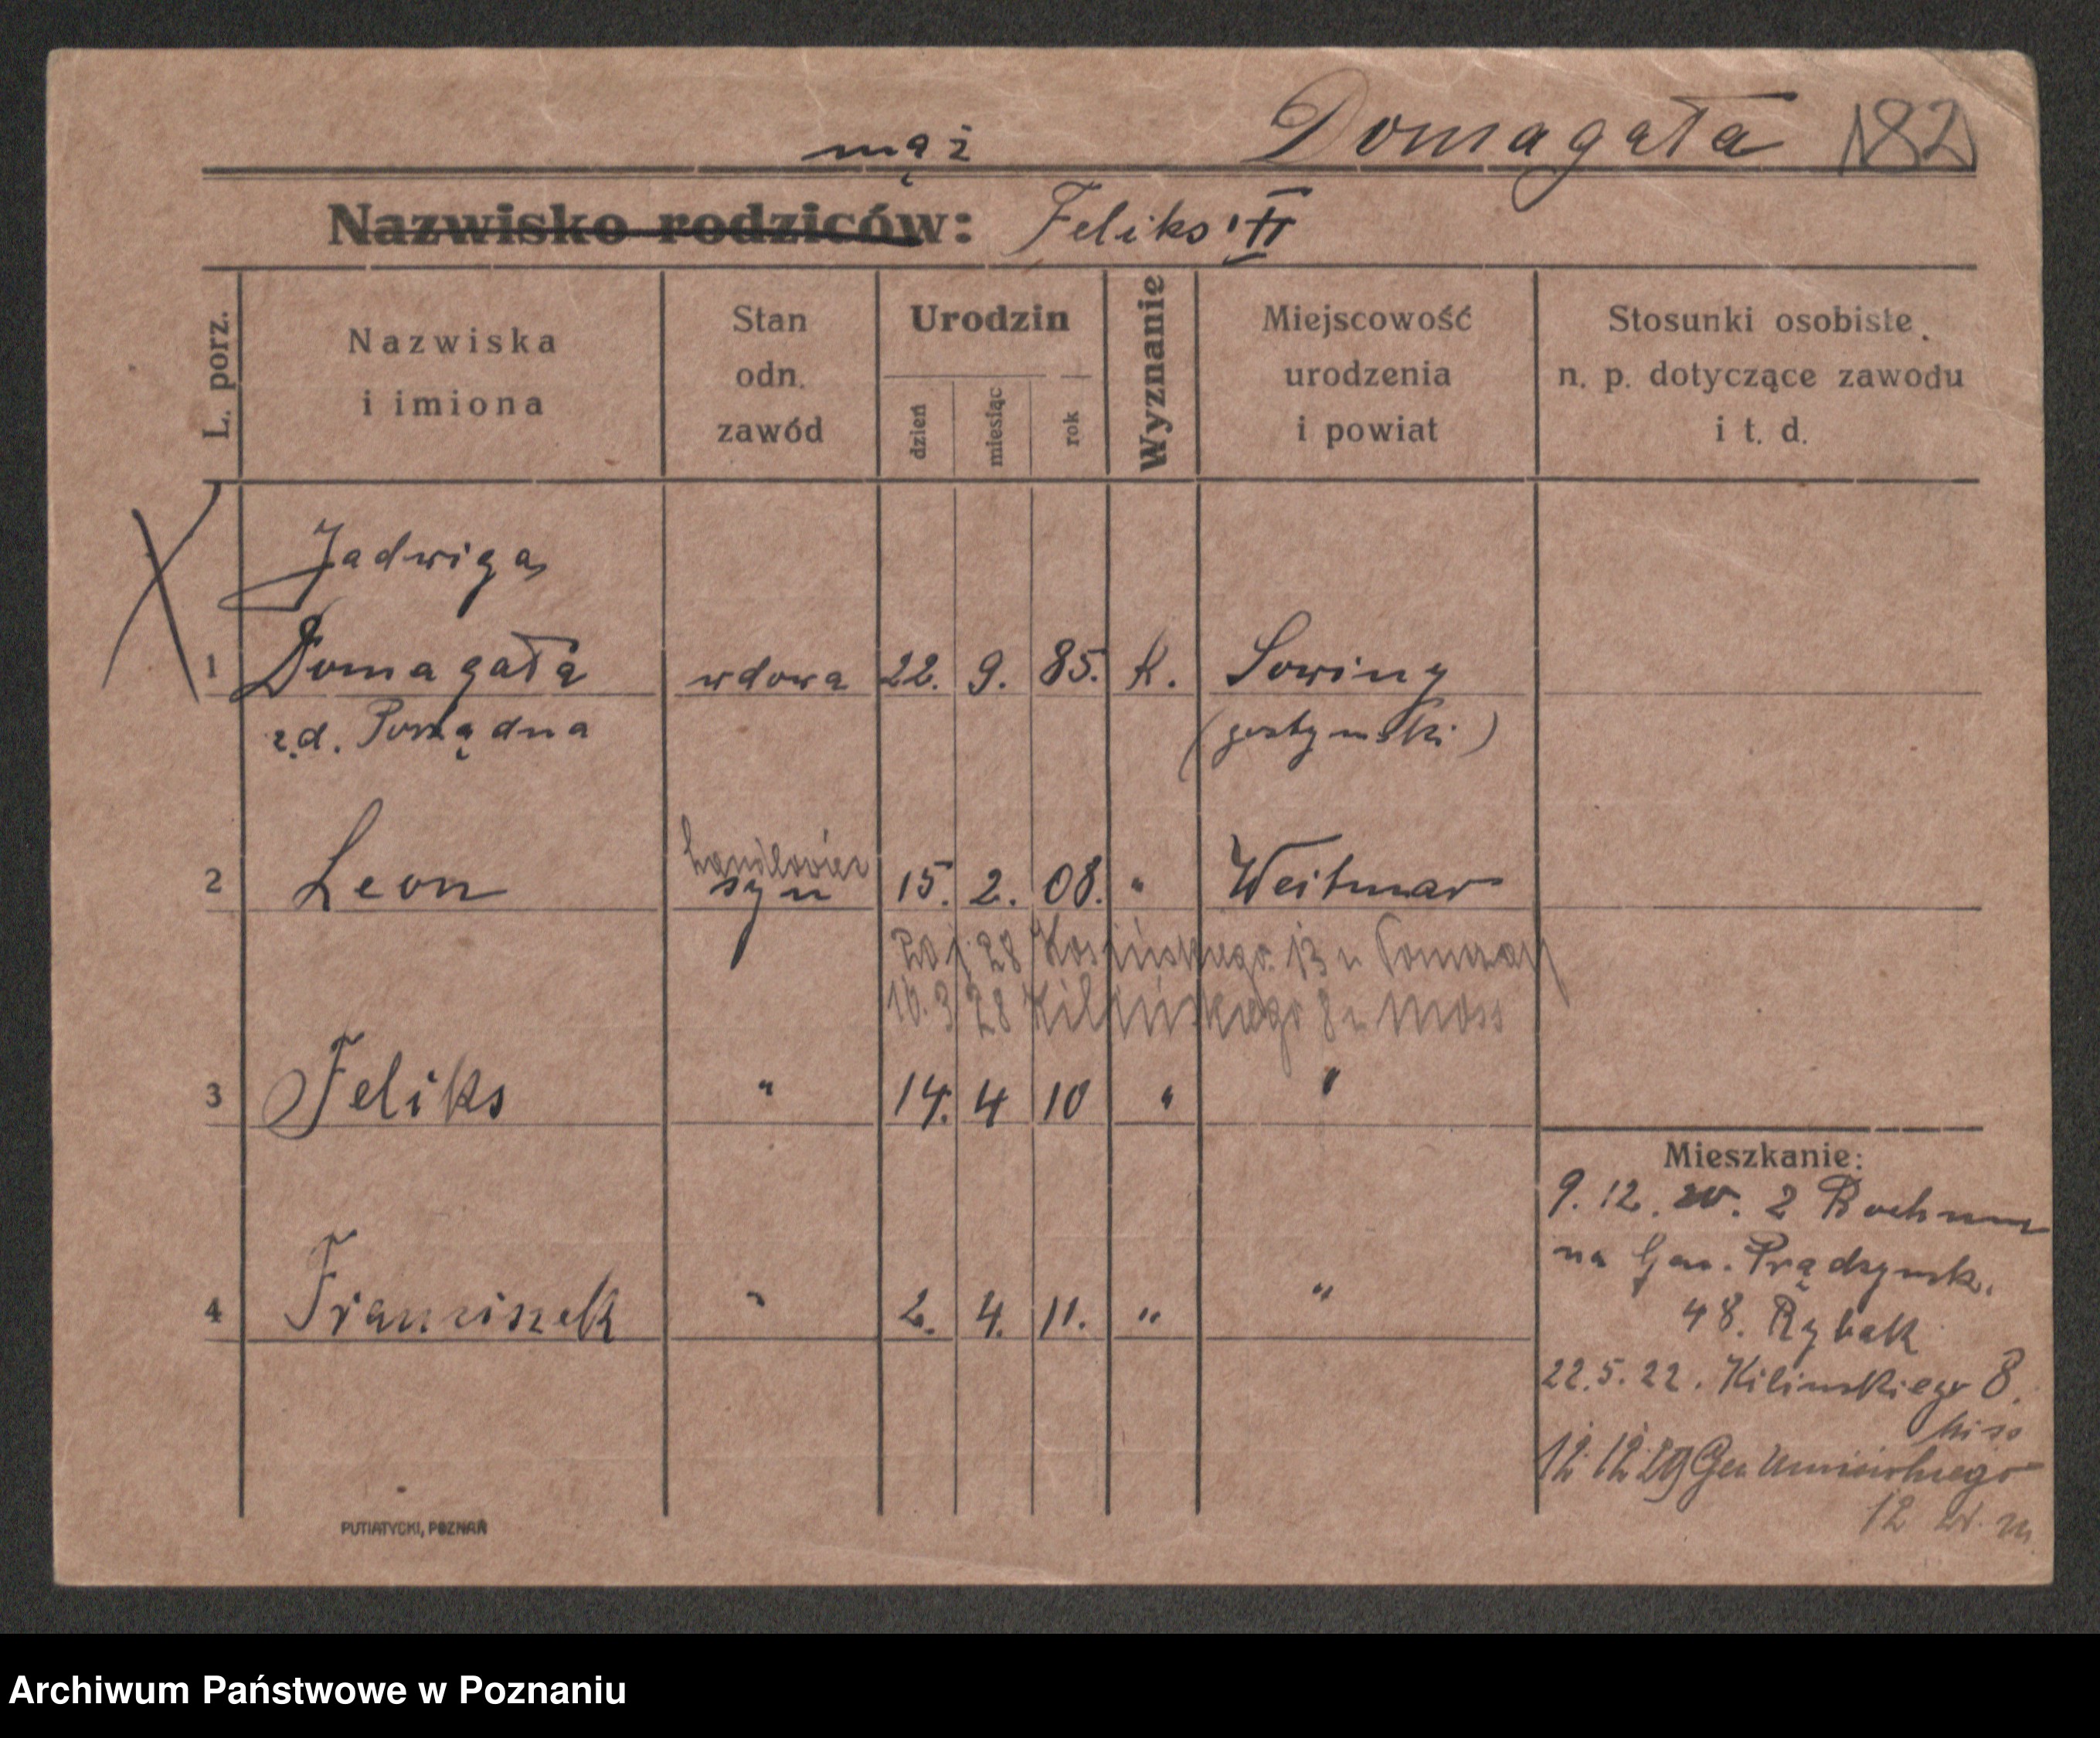 mąż Domagała 182
Nazwisko rodziców: Feliks II
L. porz.
Nazwiska
i imiona
Stan
odn.
zawód
Urodzin
dzień
miesiąc
rok
Wyznanie
Miejscowość
urodzenia
i powiat
Stosunki osobiste
n. p. dotyczące zawodu
i t. d.
Jadwiga
1 Domagała wdowa 22. 9. 85. K. Sowiny
z.d. (gostyński)
handlowiec
2 Leon syn 15. 2. 08. " Weitmar
28 Kosińskiego 13 u
16.3 28 Kilińskiego 8 u Moss
3 Feliks " 14. 4 10 " "
4 Franciszek " 2. 4. 11. " "
Mieszkanie:
9. 12. 20. z Bochum
na Gen. Prądzyńsk.
48. Rybak
22.5.22. Kilinskiego 8.
12.12.29 Gen Umińskiego
12
PUTIATYCKI, POZNAŃ
Archiwum Państwowe w Poznaniu